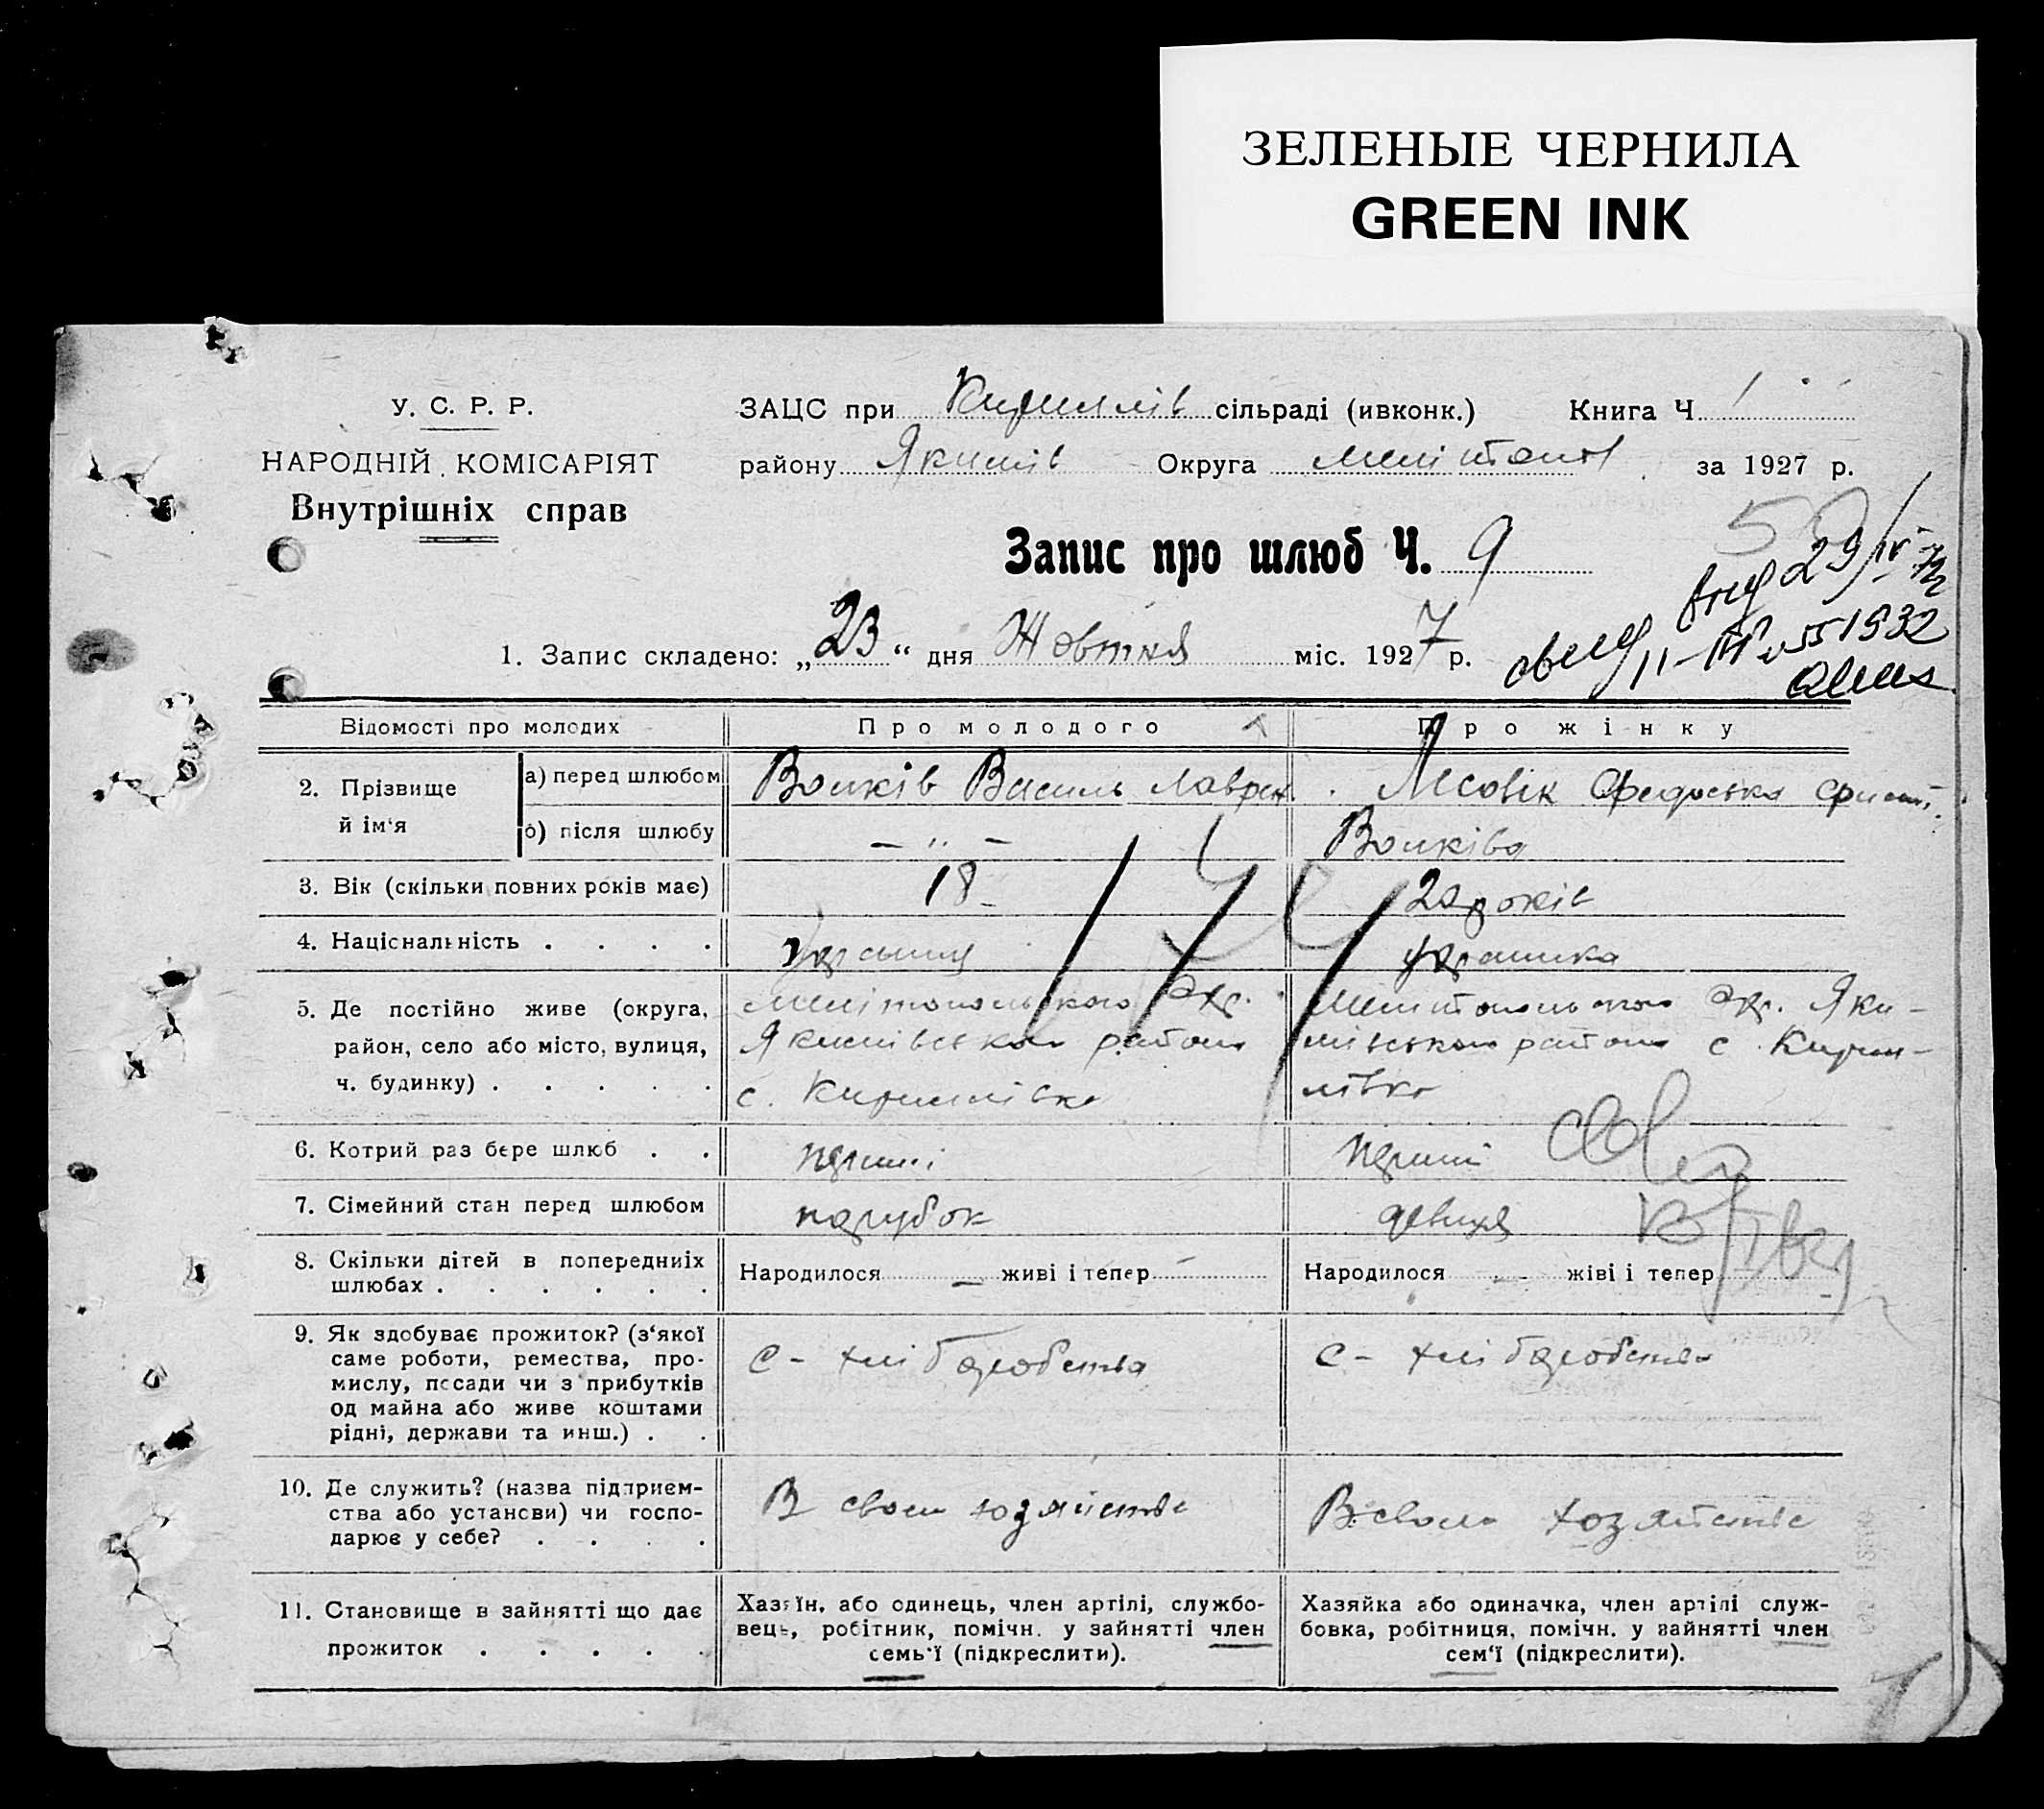 ЗЕЛЕНЫЕ ЧЕРНИЛА
GREEN INK
У. С. Р. Р.
НАРОДНІЙ КОМІСАРІЯТ
Внутрішніх справ
ЗАЦС при Кирилів сільраді (ивконк.) Книга Ч 1
району Якимів Округа Мелітоп за 1927 р.
Запис про шлюб Ч. 9
1. Запис складено: „23“ дня Жовтня міс. 1927 р.
Відомості про молодих
Про молодого
Про жінку
2. Прізвище й ім‘я
а) перед шлюбом
Волків Василь Лаврен
Лісовік Федоська
б) після шлюбу
— „ —
Волківа
3. Вік (скільки повних років має)
18
20 років
4. Національність . . . .
українка
5. Де постійно живе (округа,
район, село або місто, вулиця,
ч. будинку) . . . . .
Мелітопольського Окр.
Якимівського району
с. Кирилівка
Мелітопольського Окр. Яки-
мівського району с. Кири-
лівка
6. Котрий раз бере шлюб . .
перший
перший
7. Сімейний стан перед шлюбом
парубок
девиця
8. Скільки дітей в попередниіх
шлюбах . . . . . .
Народилося — живі і тепер —
Народилося — жіві і тепер
9. Як здобуває прожиток? (з‘якої
саме роботи, ремества, про-
мислу, посади чи з прибутків
од майна або живе коштами
рідні, держави та инш.) . .
с - хліборобства
с - хліборобства
10. Де служить? (назва підприєм-
ства або установи) чи госпо-
дарює у себе? . . . .
В своем хозяйстве
В своем хозяйстве
11. Становище в зайнятті що дає
прожиток . . . . .
Хазяїн, або одинець, член артілі, службо-
вець, робітник, помічн. у зайнятті член
семь‘ї (підкреслити).
Хазяйка або одиначка, член артілі служ-
бовка, робітниця, помічн. у зайнятті член
сем‘ї (підкреслити).